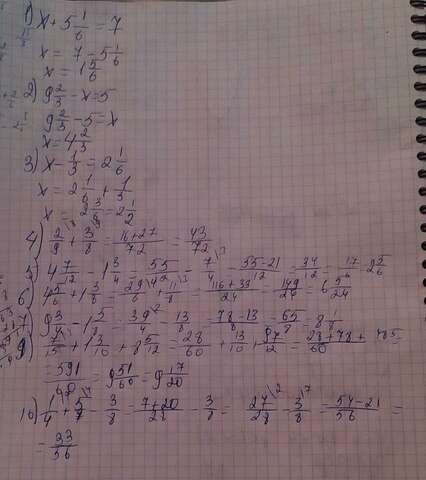 1) x + 5 1/6 = 7
x = 7 - 5 1/6
x = 1 5/6
2) 9 2/3 - x = 5
9 2/3 - 5 = x
x = 4 2/3
3) x - 1/3 = 2 1/6
x = 2 1/6 + 1/3
x = 2 3/6 = 2 1/2
4) 2/9 + 3/8 = 16+27/72 = 43/72
5) 4 7/12 - 1 3/4 = 55/12 - 7/4 = 55-21/12 = 34/12 = 17/6 = 2 5/6
6) 4 5/6 + 1 3/8 = 29/6 + 11/8 = 116+33/24 = 149/24 = 6 5/24
9 3/4 - 1 5/8 = 39/4 - 13/8 = 78-13/8 = 65/8 = 8 1/8
9) 7/15 + 1 3/10 + 8 5/12 = 28/60 + 13/10 + 97/12 = 28+78+485/60
= 591/60 = 9 51/60 = 9 17/20
10) 1/4 + 5/7 - 3/8 = 7+20/28 - 3/8 = 27/28 - 3/8 = 54-21/56 =
= 33/56